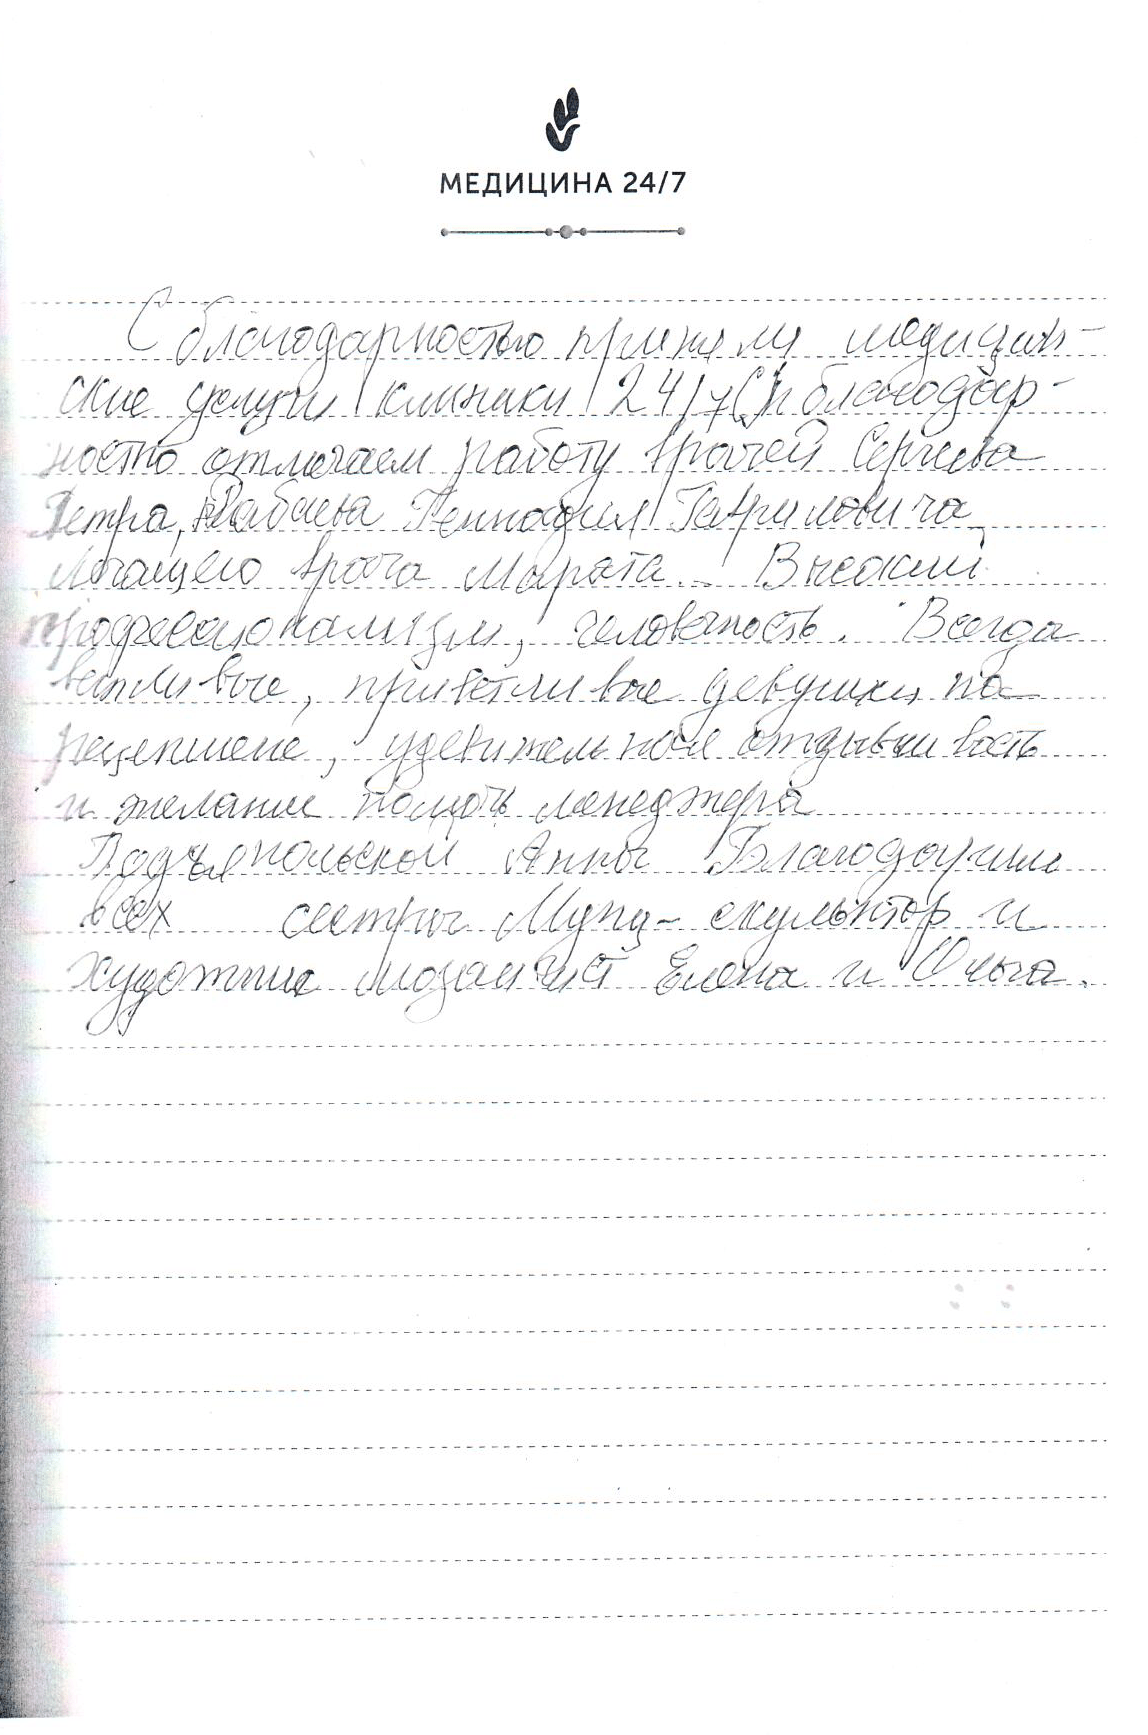 МЕДИЦИНА 24/7
С благодарностью приняли медицин-
ские услуги клиники 24/7 С благодар-
ностью отмечаем работу врачей Сергеева
Петра, Рабаева Геннадия Гавриловича
Лечащего врача Марата. Высокий
профессионализм, человечность. Всегда
вежливые, приветливые девушки на
рецепшене, удивительная отзывчивость
и желание помочь менеджера
Подъяпольской Анны Благодарим
всех сестры скульптор и
художник мозаичист Елена и Ольга.